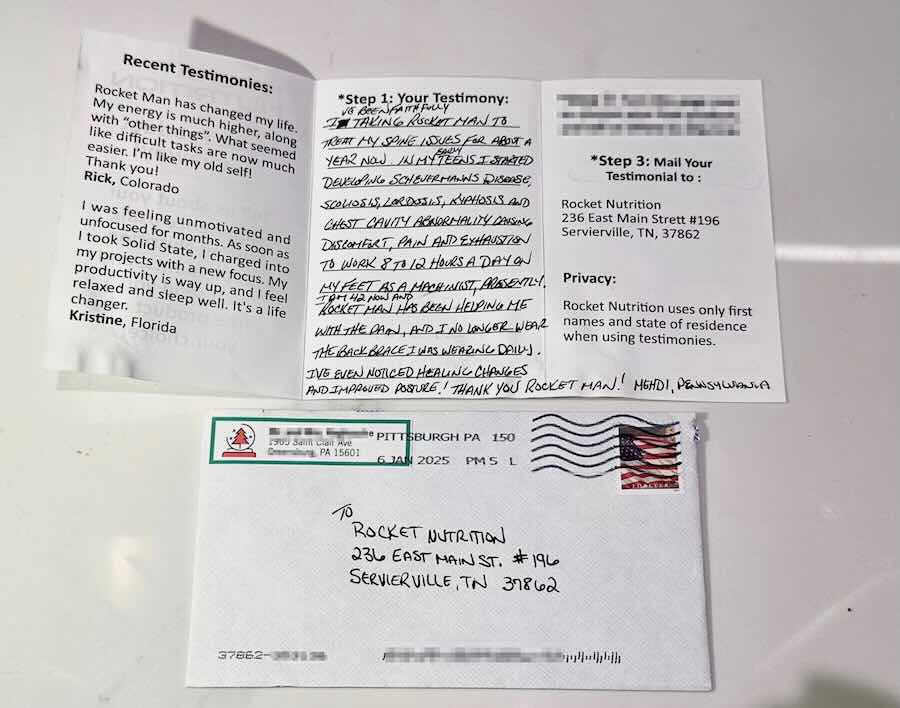 Recent Testimonies:
Rocket Man has changed my life.
My energy is much higher, along
with “other things”. What seemed
like difficult tasks are now much
easier. I’m like my old self!
Thank you!
Rick, Colorado
I was feeling unmotivated and
unfocused for months. As soon as
I took Solid State, I charged into
my projects with a new focus. My
productivity is way up, and I feel
relaxed and sleep well. It’s a life
changer.
Kristine, Florida
*Step 1: Your Testimony:
I'VE BEEN FAITHFULLY
TAKING ROCKET MAN TO
TREAT MY SPINE ISSUES FOR ABOUT A
YEAR NOW. IN MY EARLY TEENS I STARTED
DEVELOPING SCHEUERMANNS DISEASE,
SCOLIOSIS, LORDOSIS, KYPHOSIS AND
CHEST CAVITY ABNORMALITY CAUSING
DISCOMFORT, PAIN AND EXHAUSTION
TO WORK 8 TO 12 HOURS A DAY ON
MY FEET AS A MACHINIST, PRESENTLY.
I AM 42 NOW AND
ROCKET MAN HAS BEEN HELPING ME
WITH THE PAIN, AND I NO LONGER WEAR
THE BACK BRACE I WAS WEARING DAILY.
I'VE EVEN NOTICED HEALING CHANGES
AND IMPROVED POSTURE! THANK YOU ROCKET MAN! MEHDI, PENNSYLVANIA
*Step 3: Mail Your
Testimonial to :
Rocket Nutrition
236 East Main Strett #196
Servierville, TN, 37862
Privacy:
Rocket Nutrition uses only first
names and state of residence
when using testimonies.
Saint Clair Ave
PA 15601
PITTSBURGH PA 150
6 JAN 2025 PM 5 L
TO
ROCKET NUTRITION
236 EAST MAIN ST. #196
SERVIERVILLE, TN 37862
37862-